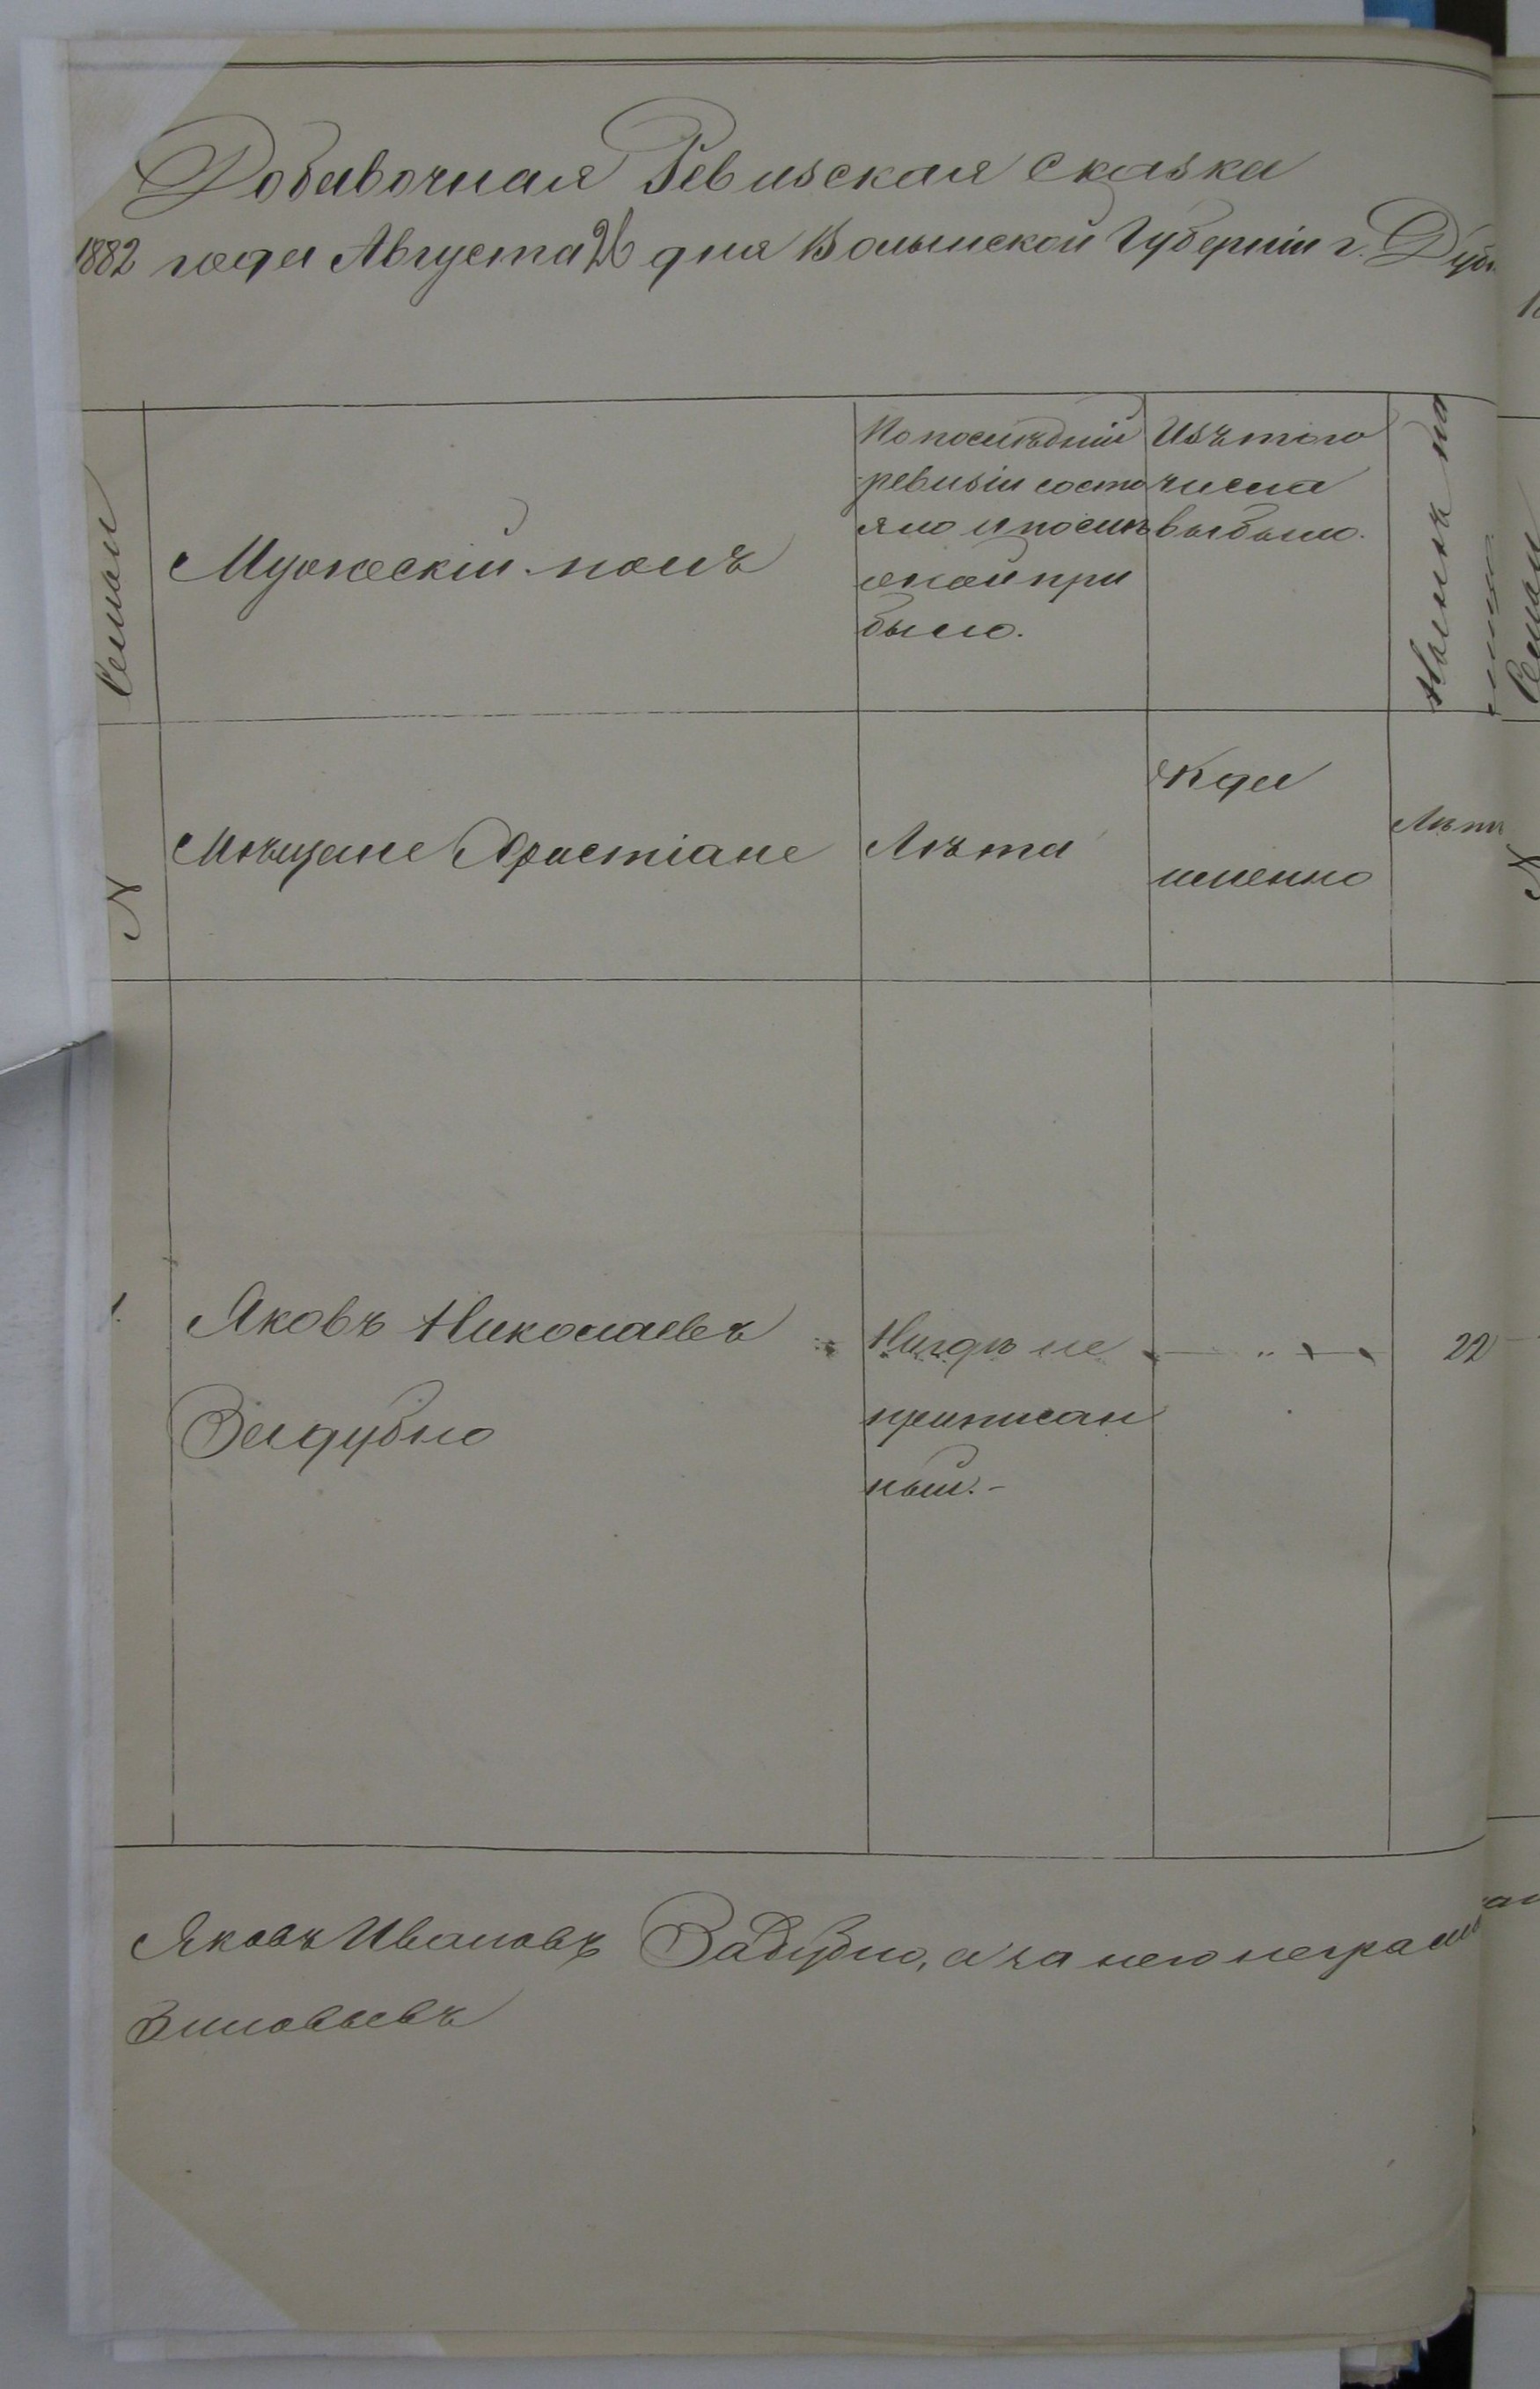 Добавочная Ревизская сказка
1882 года Августа 26 дня Волынской Губерніи г. Дуб
Семьи
Мужескій полъ
По последній
ревизіи состо
яло и послѣ
оной при
было.
Изъ того
числа
выбыло.
Нынѣ на
лицо
№
Мѣщане Христіане
Лѣта
Когда
именно
Лѣта
1.
Яковъ Николаевъ
Задубно
Нигдѣ не
приписан
ный.-
22
Яковъ Ивановъ Задубно, а за него неграм
Зиновьевъ
Семьи